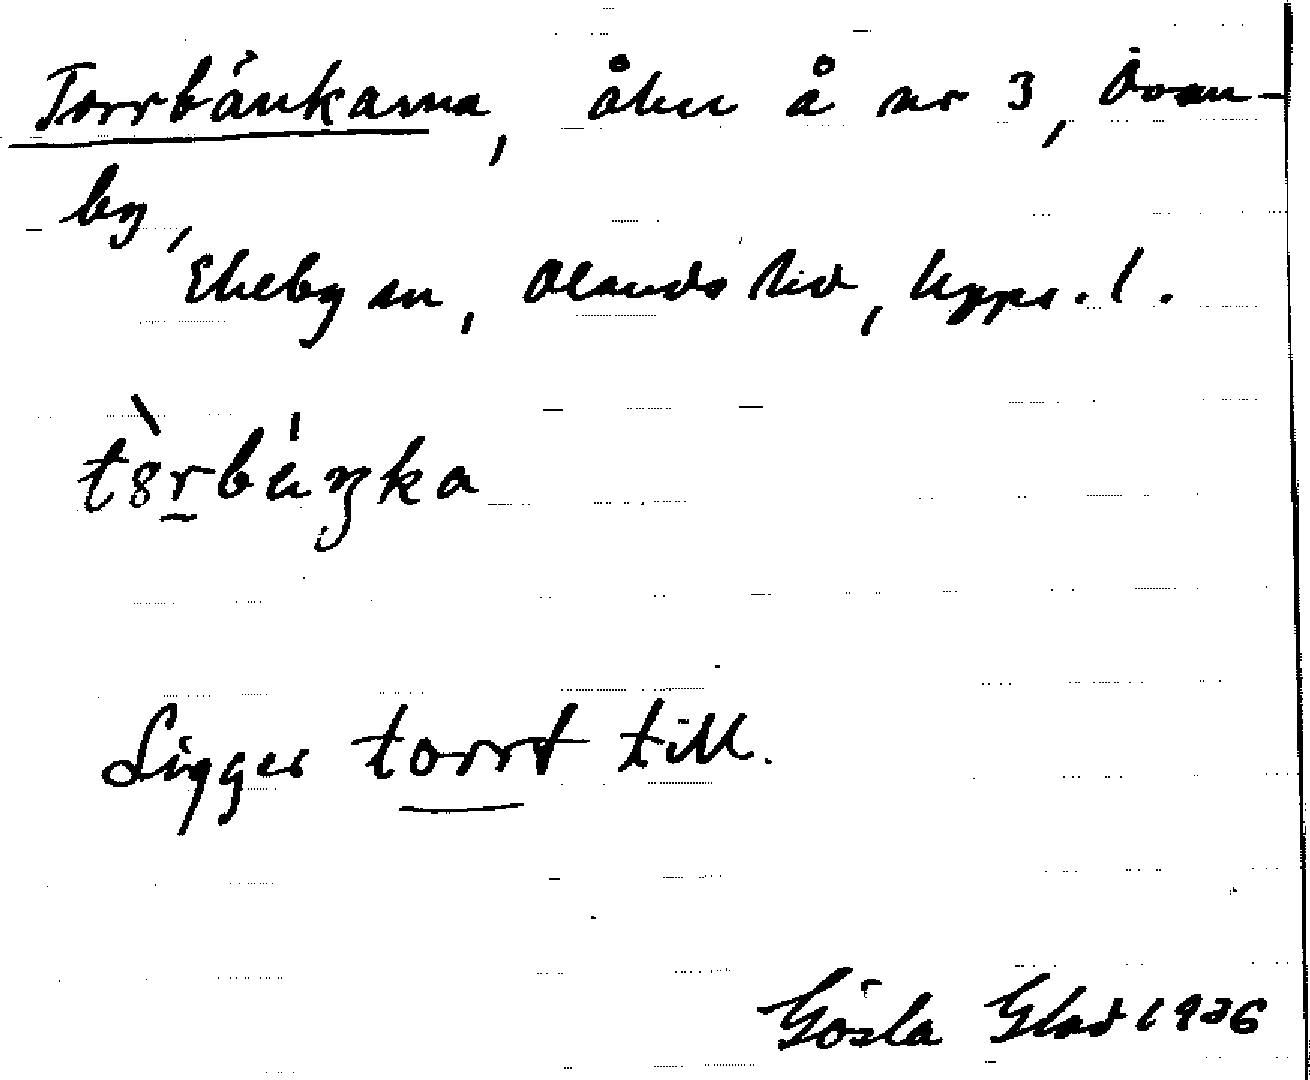 Torrbänkarna, åker å nr 3, Ovan-
by,
Ekeby sn, Olands hd, Upps. l.
Ligger torrt till.
Gösta Glad 1936